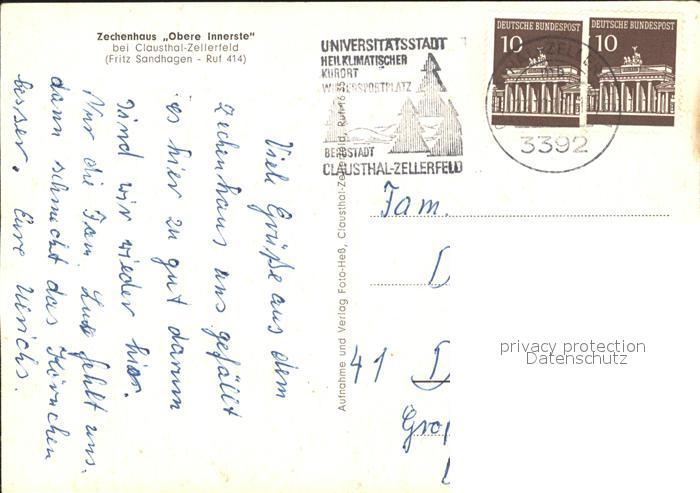 Zechenhaus „Obere Innerste"
bei Clausthal-Zellerfeld
(Fritz Sandhagen - Ruf 414)
UNIVERSITÄTSSTADT
HEILKLIMATISCHER
KURORT
WINTERSPORTPLATZ
BERGSTADT
CLAUSTHAL-ZELLERFELD
DEUTSCHE BUNDESPOST
10
DEUTSCHE BUNDESPOST
10
3392
Viele Grüße aus dem
Zechenhaus uns gefällt
es hier zu gut darum
sind wir wieder hier.
Nur die Fam. fehlt uns.
dann schmeckt das Körnchen
besser. Eure Ulrichs.
Aufnahme und Verlag Foto-Heß, Clausthal-Zellerfeld, Ruf
Fam.
D
41 D
Gro
privacy protection
Datenschutz